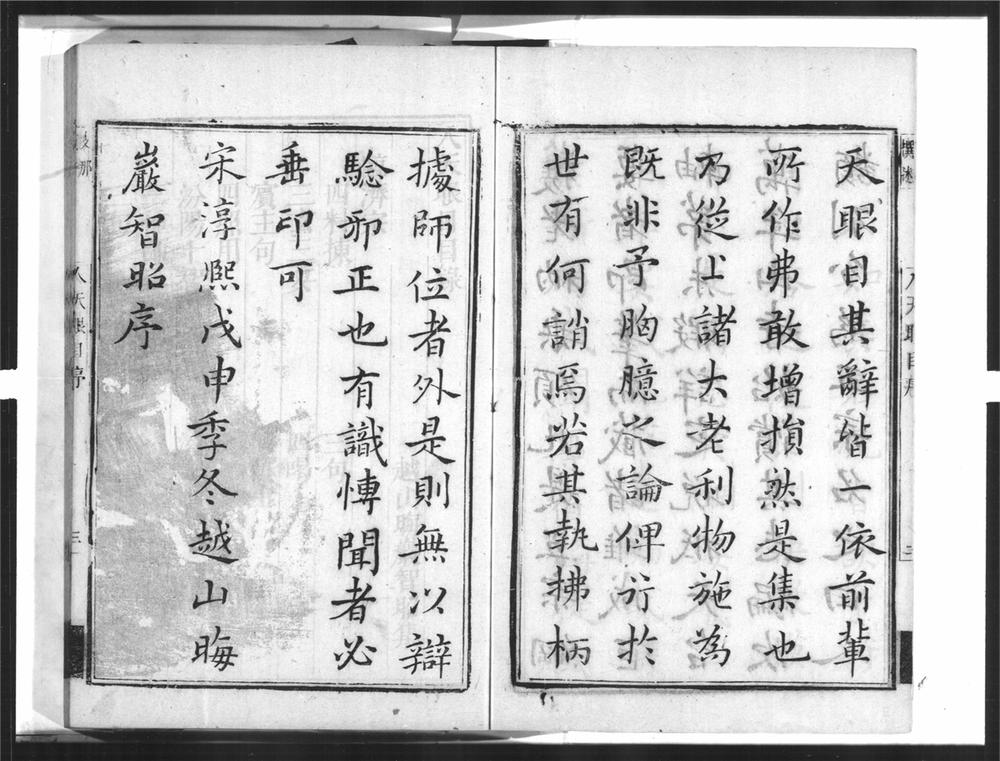 天眼目其辭皆一依前輩
所作弗敢增損然是集也
乃從上諸大老利物施為
既非予胸臆之論俾行於
世有何誚焉若其執拂柄
據師位者外是則無以辯
驗邪正也有識博聞者必
垂印可
宋淳熈戊申季冬越山晦
巖智昭序
人天眼目序
三